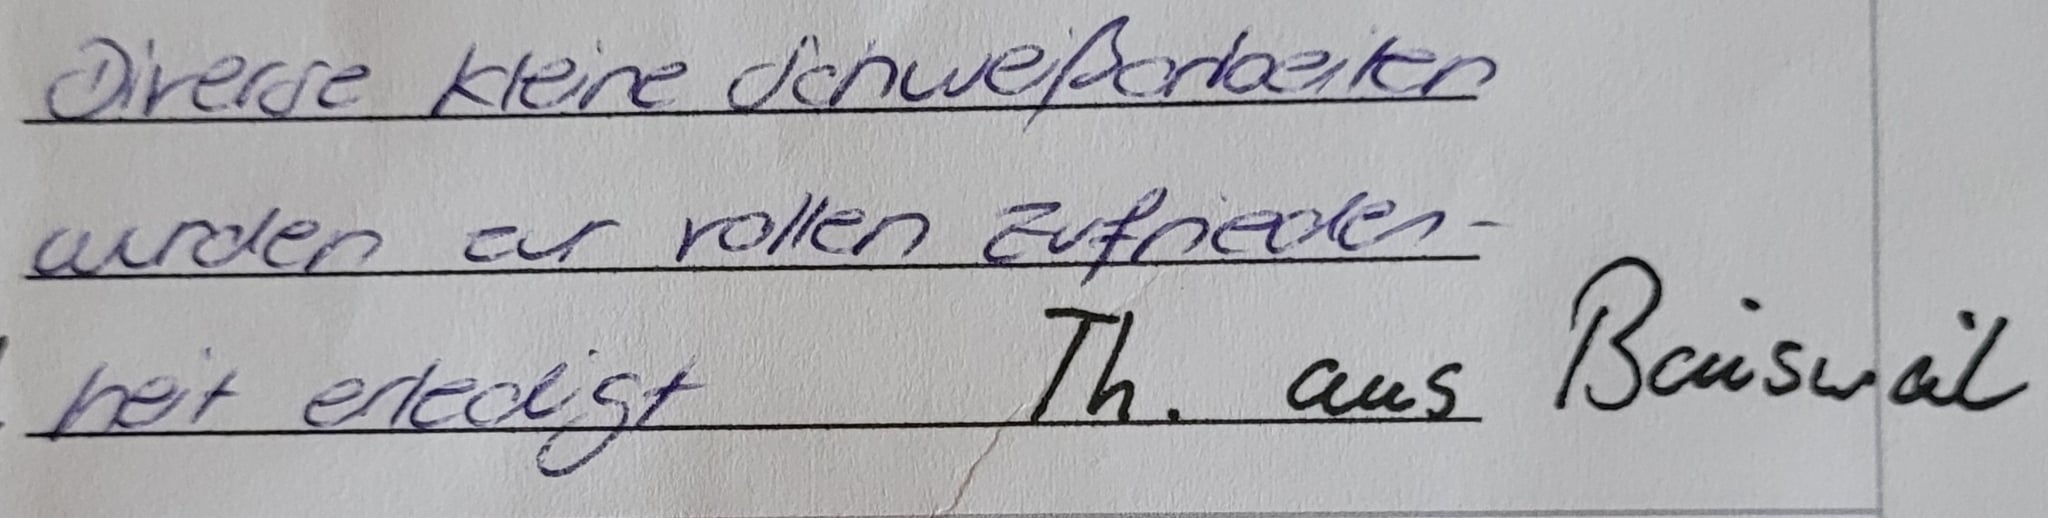 Diverse kleine Schweißarbeiten
wurden zur vollen Zufrieden-
heit erledigt Th. aus Baisweil